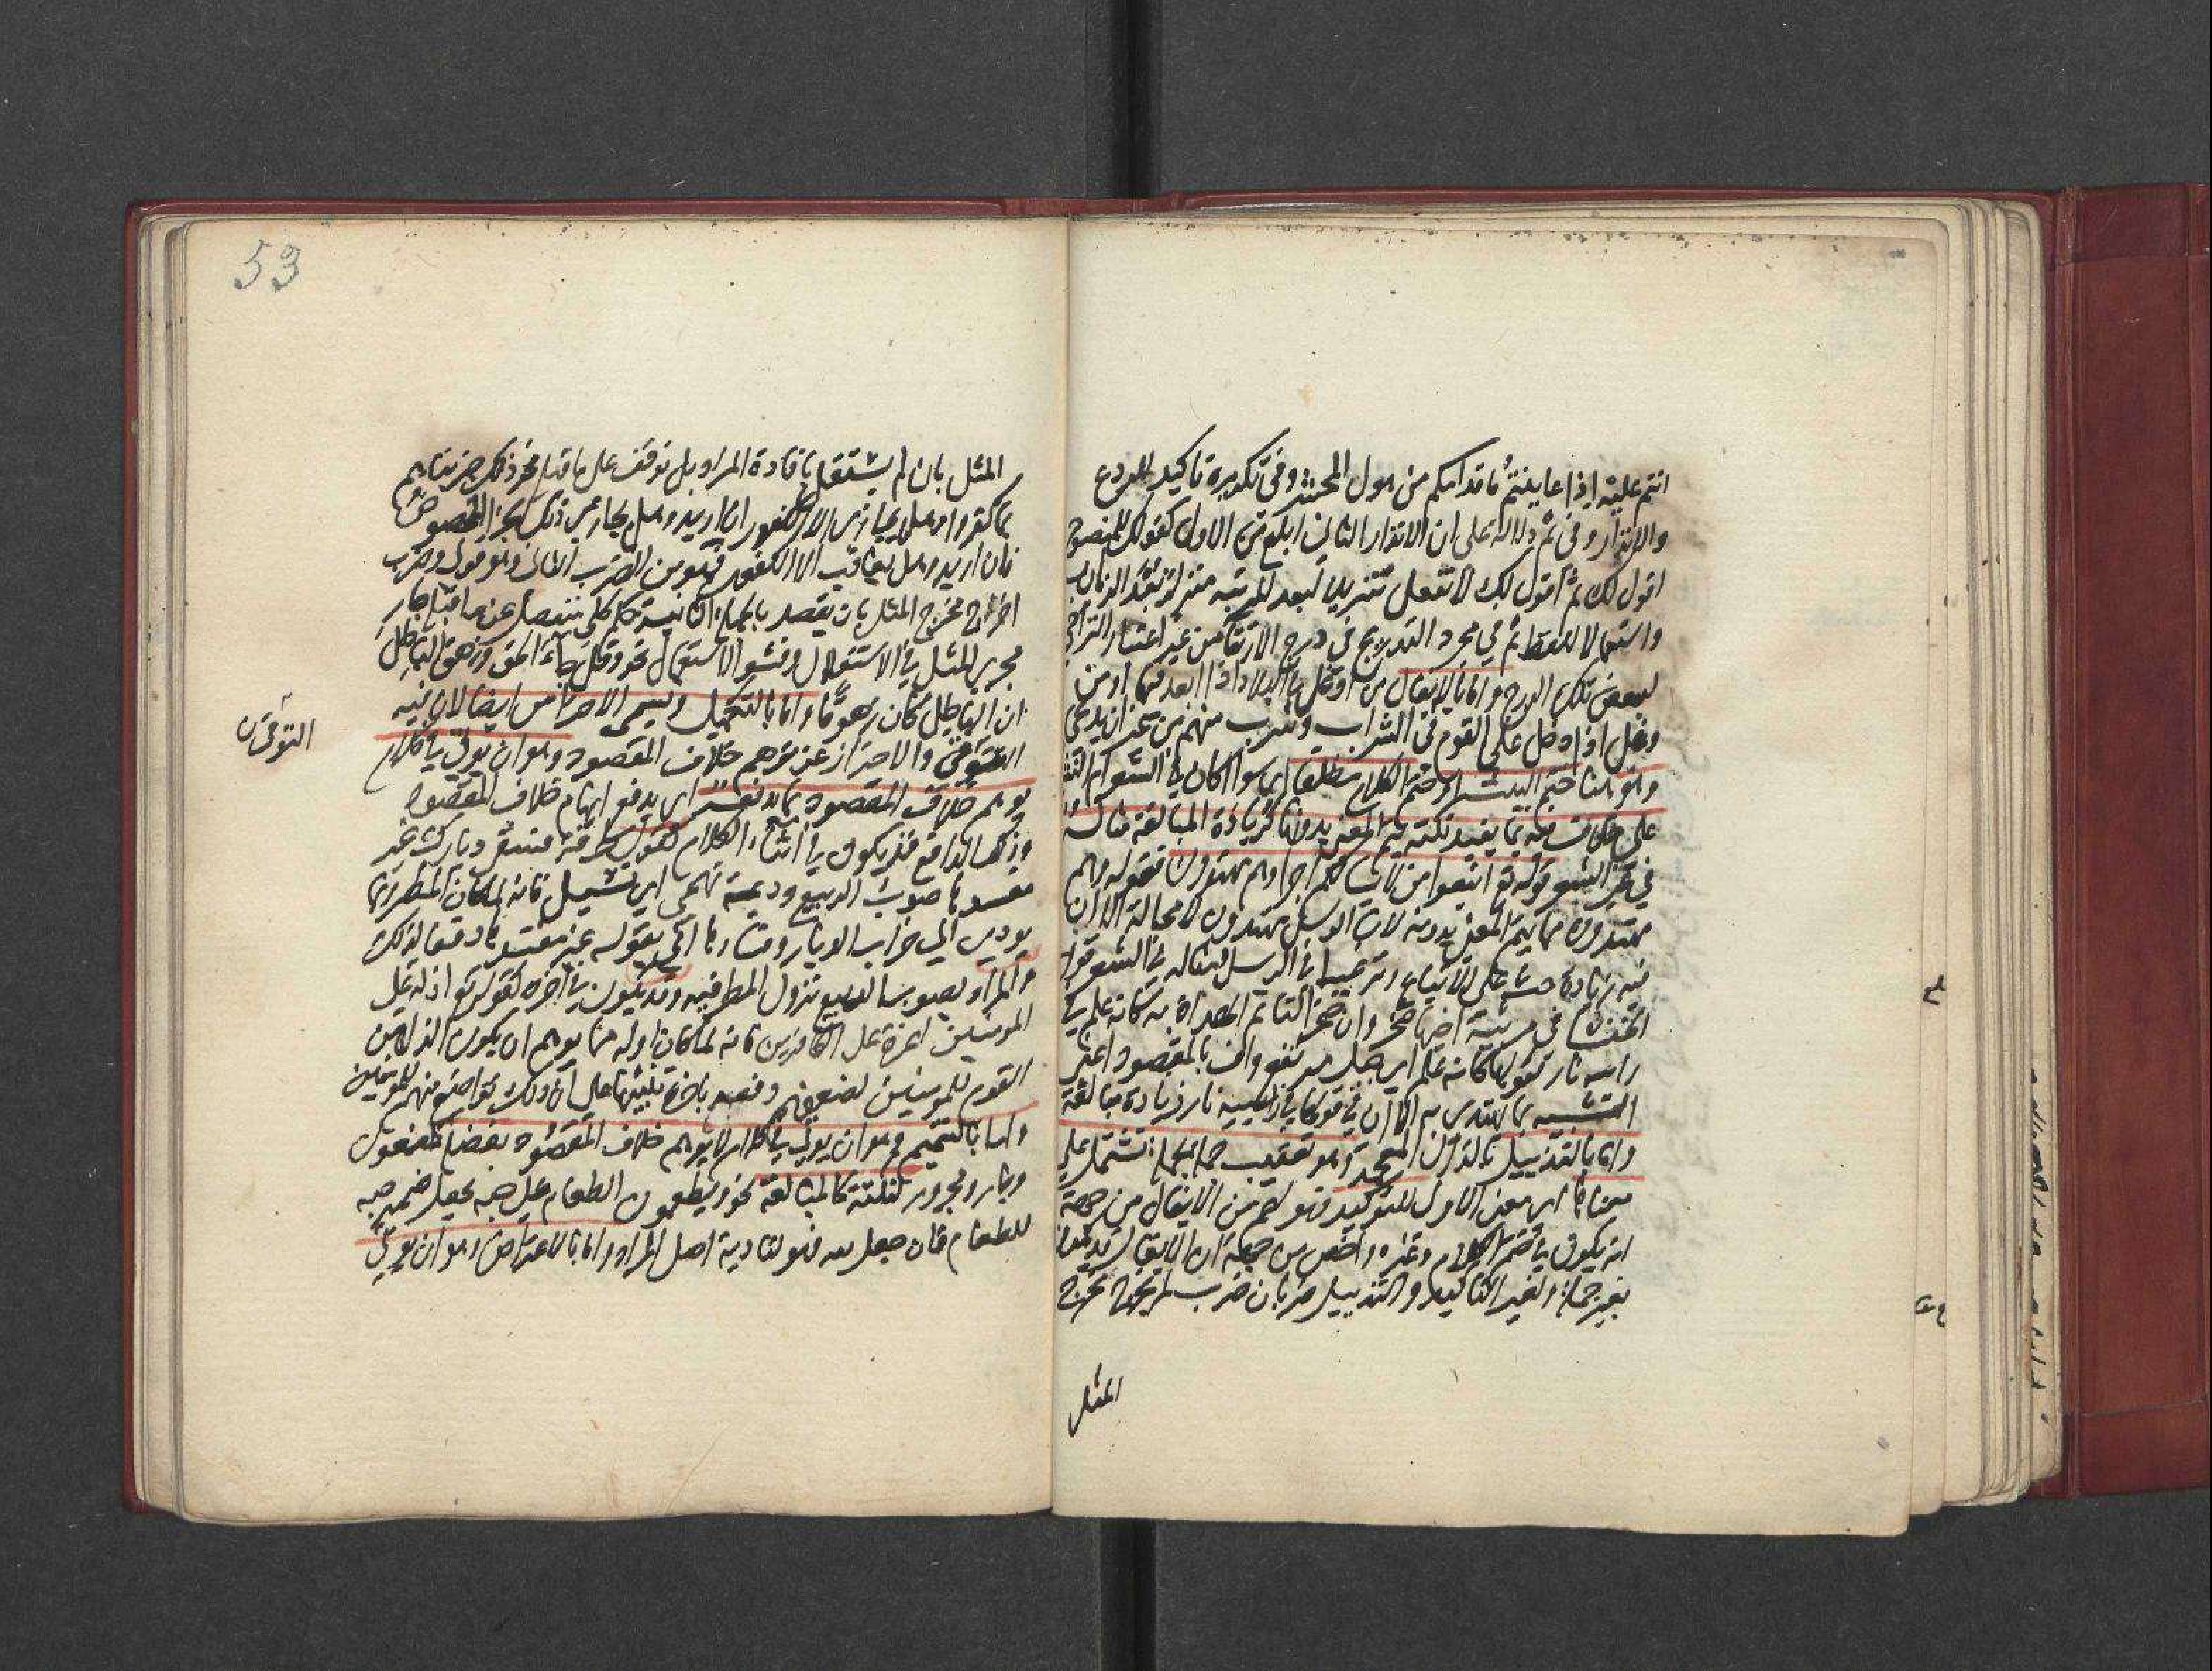 انتم عليه اذا عاينتم ما قدامكم من هول المحشر وفي تكريره تاكيد للردع
والانذار وفي ثم دلالة على ان الانذار الثاني ابلغ من الاول كقولك للمنصوح
اقول لك ثم اقول لك لا تفعل تنزيلا لبعد المرتبة منزلة بعد الزمان
واستعمالا للفظ ثم في مجرد التدريج في درج الارتقا من غير اعتبار التراخي
لبعض تلك الدرج واما بالايغال من اوغل في البلاد اذا ابعد فيها او من
وغل اذا دخل على القوم في الشراب وشرب منهم من غير ان يدعى
وهو هنا ختم البيت او ختم الكلام مطلقا اي سوا كان في الشعر ام النثر
على بما يفيد نكتة يتم المعنى بدونها كزيادة المبالغة مثاله
في غير الشعر قوله تع اتبعوا من لا يسالكم اجرا وهم مهتدون فقوله وهم
مهتدون مما يتم المعنى بدونه لان الرسل مهتدون لا محالة الا ان
فيه زيادة حث على الاتباع وترغيبا في الرسل ومثاله في الشعر قول
الخنسا في مرثية اخيها صخر وان صخرا لتاتم الهداة به كانه علم في
راسه نار فقولها كانه علم اي جبل مرتفع واف بالمقصود اعني
التشبيه بما يهتدى به الا ان في قولها في راسه نار زيادة مبالغة
واما بالتذييل بالذال المعجمة وهو تعقيب جملة بجملة تشتمل على
معناها اي معنى الاولى للتوكيد فهو اعم من الايغال من جهة
انه يكون في ختم الكلام وغيره واخص من جهة ان الايغال قد يكون
بغير جملة ولغير التاكيد والتذييل ضربان ضرب لم يخرج مخرج
المثل
53
المثل بان لم يستقل بافادة المراد بل توقف على ما قبله نحو ذلك جزيناهم
بما كفروا وهل يجازى الا الكفور ان اريد وهل يجازى ذلك الجزا المخصوص
فان اريد وهل يعاقب الا الكفور فهو من الضرب الثاني وهو قوله وضرب
اخرج مخرج المثل بان يقصد بالجملة الثانية حكم كلي منفصل عن ما قبله جار
مجرى المثل في الاستقلال وفشو الاستعمال نحو وقل جاء الحق وزهق الباطل
ان الباطل كان زهوقا واما بالتكميل ويسمى الاحتراس ايضا لان فيه
التوقي والاحتراز عن توهم خلاف المقصود وهو ان يوتى في كلام
التوقي
يوهم خلاف المقصود بما يدفعه اي يدفع ايهام خلاف المقصود
وذلك الدافع قد يكون في اثناء الكلام كقول طرفة فسقى ديارك غير
مفسدها صوب الربيع وديمة تهمي اي تسيل فانه لما كان المطر ربما
يودي الى خراب الديار وفسادها اتى بقوله غير مفسدها دفعا لذلك
والمراد بصوب الربيع نزول المطر فيه وقد يكون في اخره كقوله تع اذلة على
المومنين اعزة على الكافرين فانه لما كان اوله مما يوهم ان يكون الذل من
القوم للمومنين لضعفهم دفعه باخره تنبيها على ان ذلك تواضع منهم للمومنين
واما بالتتميم وهو ان يوتى في كلام لا يوهم خلاف المقصود بفضلة كمفعول
وجار ومجرور لنكتة كالمبالغة نحو ويطعمون الطعام على حبه بجعل ضمير حبه
للطعام فان جعل لله فهو لتادية اصل المراد واما بالاعتراض وهو ان يوتى